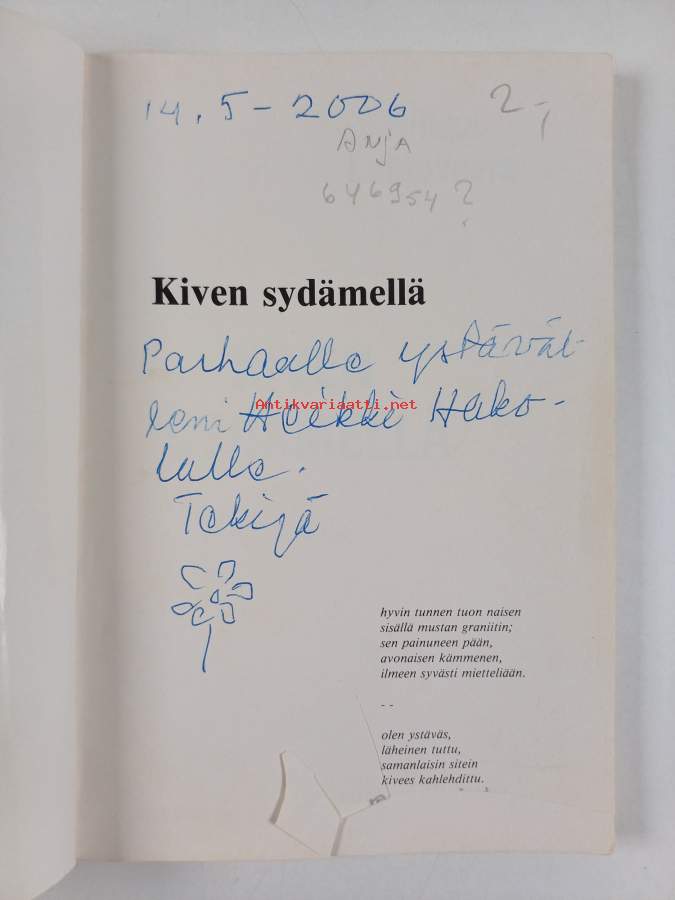 14.5-2006
2,-
Anja
646954?
Kiven sydämellä
Parhaalle ystäväl-
leni Heikki Hako-
lalle.
Tekijä
Antikvariaatti.net
hyvin tunnen tuon naisen
sisällä mustan graniitin;
sen painuneen pään,
avonaisen kämmenen,
ilmeen syvästi mietteliään.
- -
olen ystäväs,
läheinen tuttu,
samanlaisin sitein
kivees kahlehdittu.